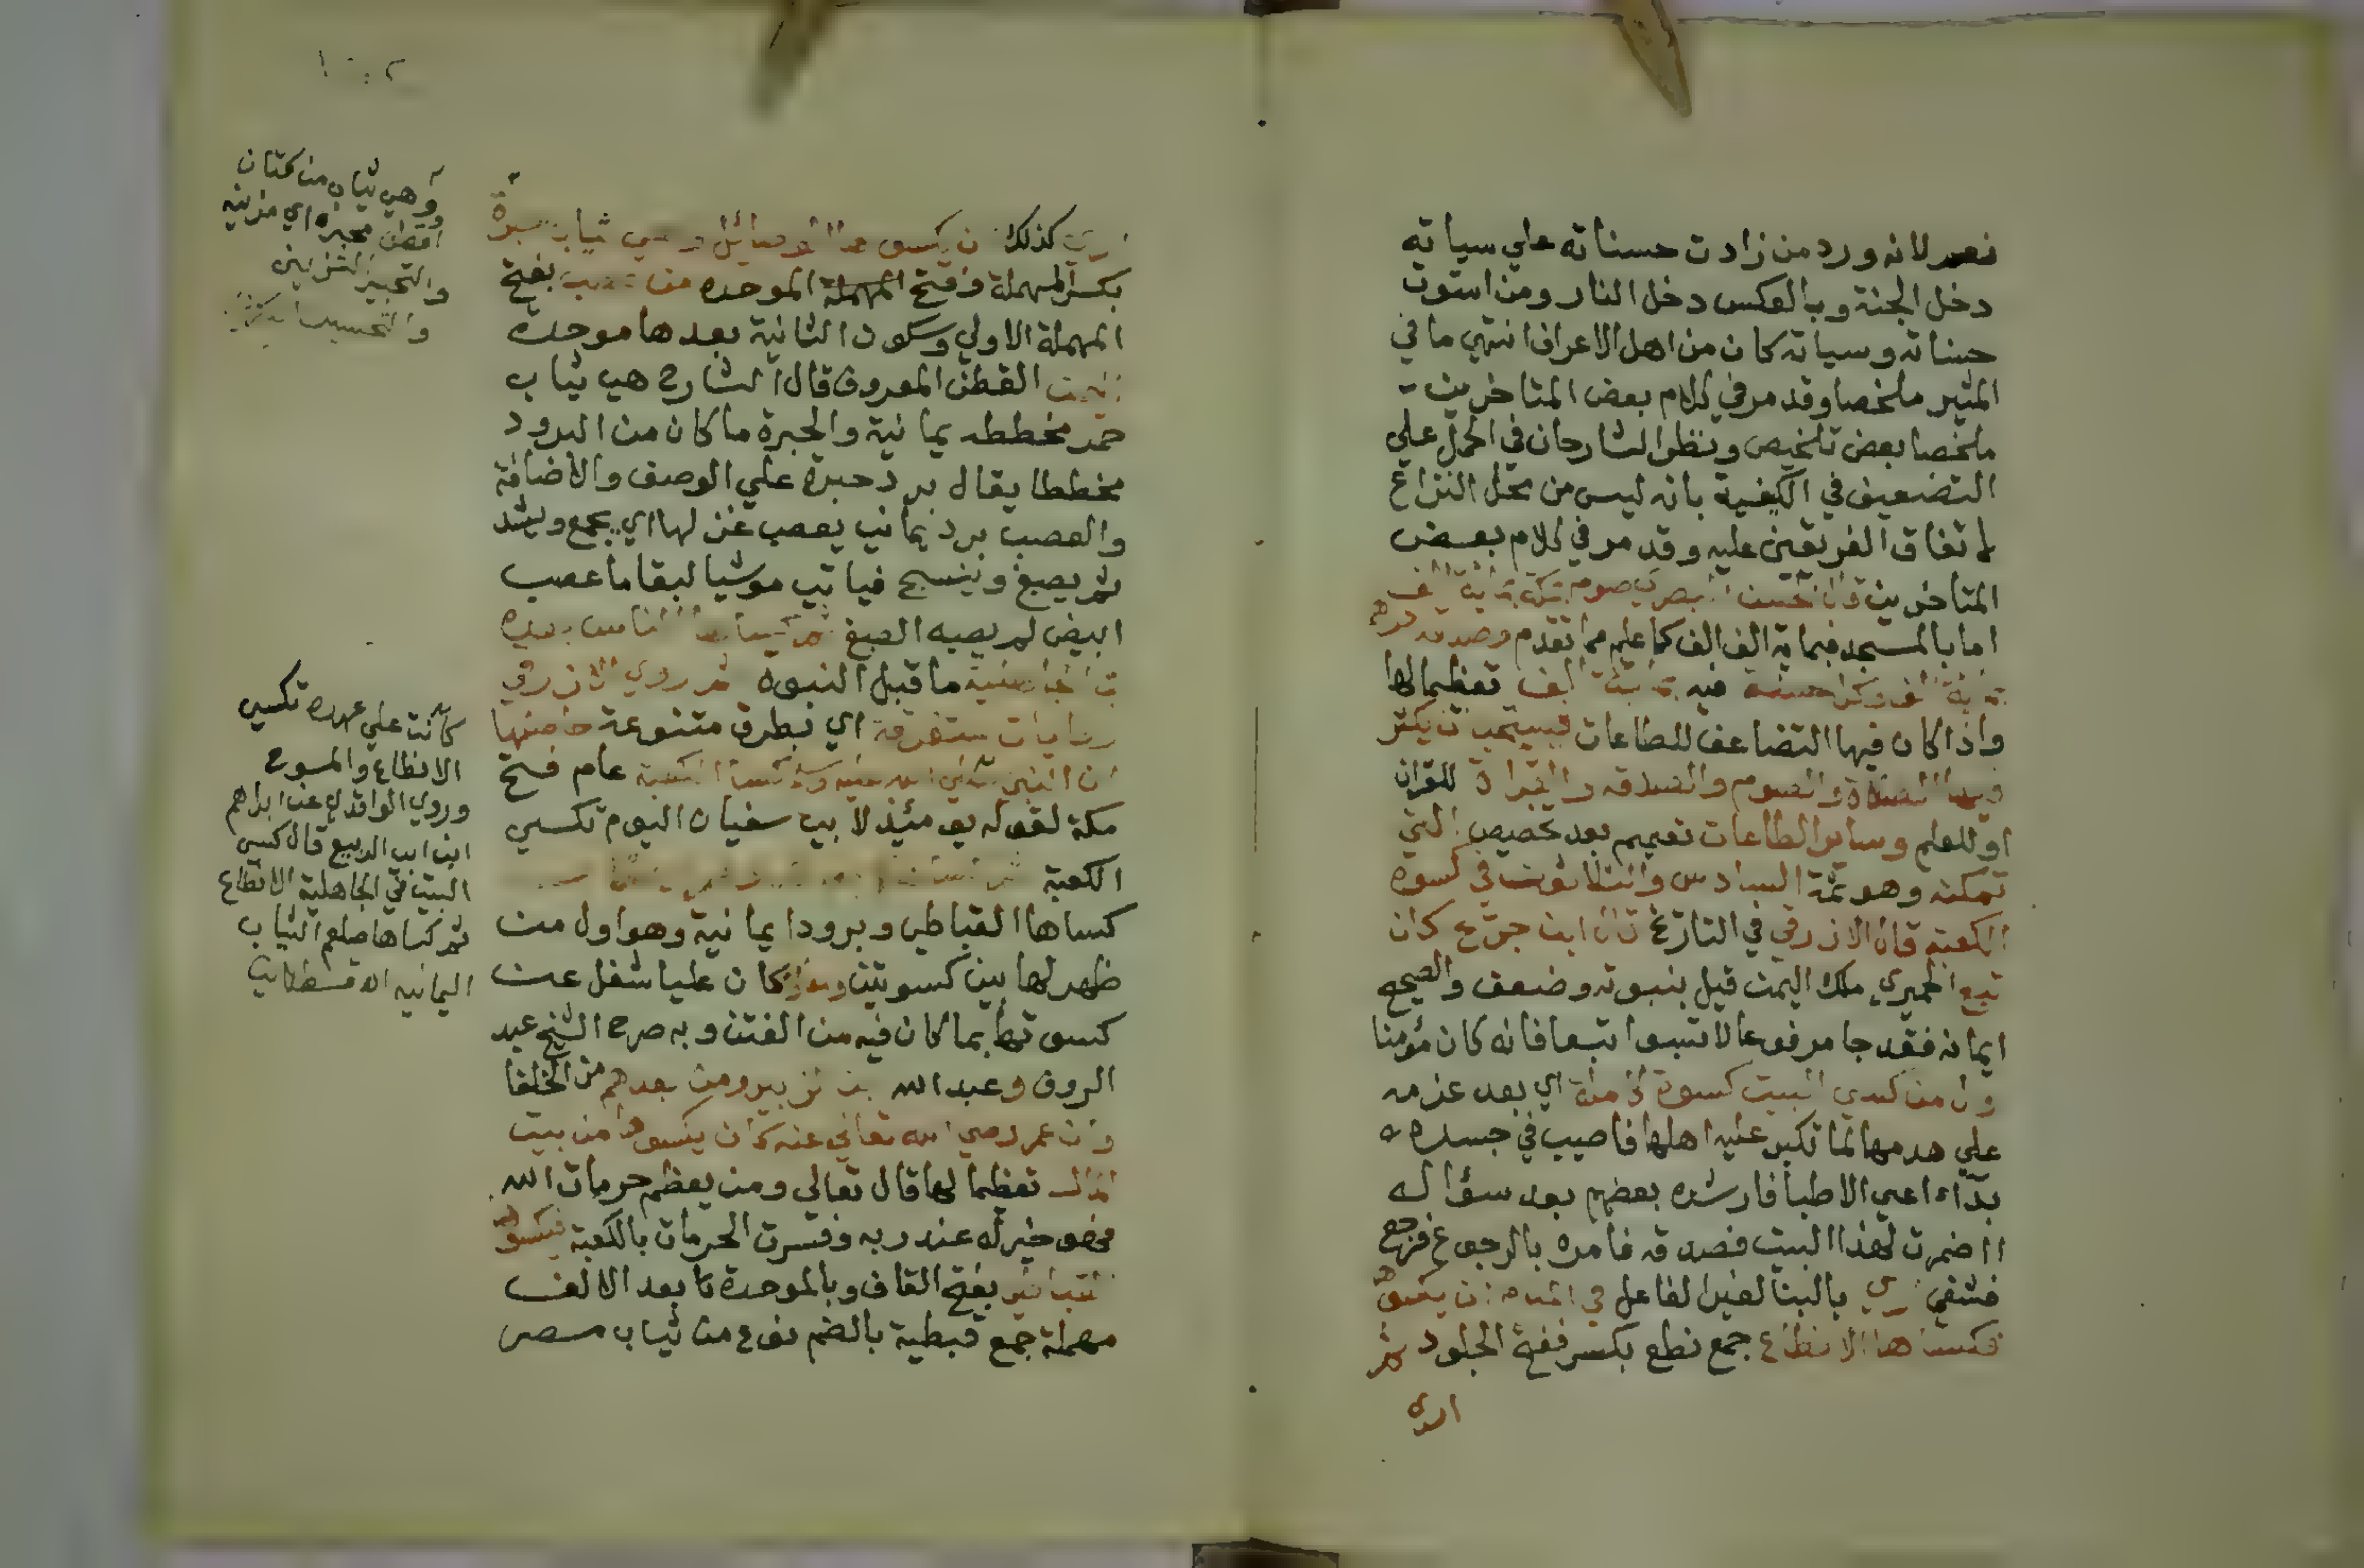 نعم لانه ورد من زادت حسناته علي سياته
دخل الجنة وبالعكس دخل النار ومن استوت
حسناته وسياته كان من اهل الاعراف انتهي ما في
المنير ملخصا وقد مر في كلام بعض المتاخرين
ملخصا بعض تلخيص ونظر الشارحان في الحمل علي
التضعيف في الكيفية بانه ليس من محل النزاع
لاتفاق الفريقين عليه وقد مر في كلام بعض
المتاخرين قال الحسن البصري صوم بمكة بماية الف
اما بالمسجد فبماية الف الف كما علم مما تقدم وصدقة درهم
بماية الف وكل حسنة فيه بماية الف تعظيما لها
واذا كان فيها التضاعف للطاعات فيستحب ان يكثر
فيها الصلاة والصوم والصدقه والقراة للقران
او للعلم وساير الطاعات تعميم بعد تخصيص التي
تمكنه وهو تمة السادس والثلاثون في كسوة
الكعبة قال الازرقي في التاريخ قال ابن جريج كان
تبع الحميري ملك اليمن قبل بنبوته وضعف والصحيح
ايمانه فقد جا مرفوعا لا تسبوا تبعا فانه كان مؤمنا
اول من كسي البيت كسوة كاملة اي بعد عزمه
علي هدمها لما تكبر عليه اهلها فاصيب في جسده
بداء اعي الاطبا فارشده بعضهم بعد سؤاله
ااضمرت لهذا البيت فصدقه فامره بالرجوع فرجع
فشفي اري بالبنا لغير الفاعل في المنام ان يكسوها
فكساها الانطاع جمع نطع بكسر ففتح الجلود ثم
اري
اري كذلك ان يكسوها الوصائل وهي ثياب حبرة
بكسر المهملة وفتح المهملة الموحده من عصب بفتح
المهملة الاولي وسكون الثانية بعدها موحدة
اليمن القطن المعروف قال الشارح هي ثياب
حمر مخططه يمانية والحبرة ما كان من البرود
مخططا يقال برد حبرة علي الوصف والاضافة
والعصب برد يماني يعصب غزلها اي يجمع ويشد
ثم يصبغ وينسج فياتي موشيا لبقا ما عصب
ابيض لم يصبه الصبغ ثم كساها الناس بعده
في الجاهلية ما قبل النبوه ثم روي الازرقي
روايات متفرقة اي بطرق متنوعة حاصلها
ان النبي صلي الله عليه وسلم كسا الكعبة عام فتح
مكة لقوله يومئذ لابي سفيان اليوم تكسي
الكعبة
كساها القباطي وبرودا يمانية وهو اول من
ظهر لها بين كسوتين وكان عليا شغل عن
كسوتها بما كان فيه من الفتن وبه صرح الشيخ عبد
الروف وعبد الله بن الزبير ومن بعدهم من الخلفا
وان عمر رضي الله تعالي عنه كان يكسوها من بيت
المال تعظيما لها قال تعالي ومن يعظم حرمات الله
فهو خير له عند ربه وفسرت الحرمات بالكعبة فيكسوها
القباطي بفتح القاف وبالموحدة ما بعد الالف
مهملة جمع قبطية بالضم نوع من ثياب مصر
وهي ثياب من كتان
او قطن محبره اي مزينه
والتحبير التزيين
والتحسين
كانت علي عهده تكسي
الانطاع والمسوح
وروي الواقدي عن ابراهيم
ابن ابي الربيع قال كسي
البيت في الجاهلية الانطاع
ثم كساها صلعم الثياب
اليمانيه اه قسطلاني